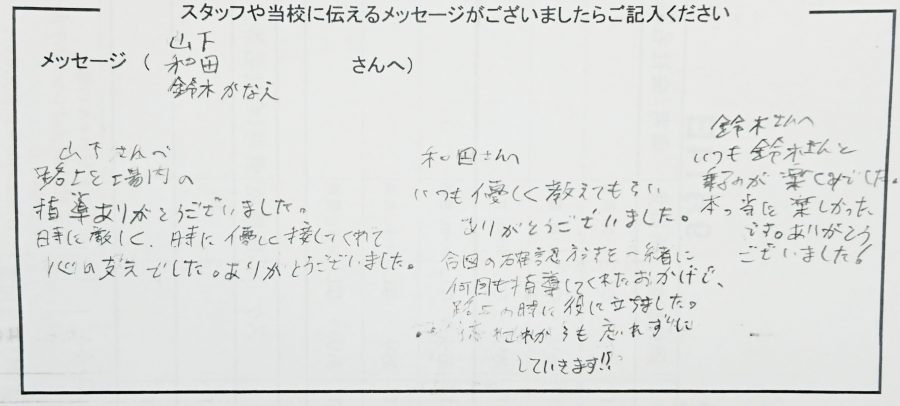 スタッフや当校に伝えるメッセージがございましたらご記入ください
メッセージ（
山下
和田
鈴木かなえ
さんへ）
山下さんへ
路上と場内の
指導ありがとうございました。
時に厳しく、時に優しく接してくれて
心の支えでした。ありがとうございました。
和田さんへ
いつも優しく教えてもらい
ありがとうございました。
合図の確認方法を一緒に
何回も指導してくれたおかげで、
路上の時に役に立ちました。
これからも忘れずに
していきます!!
鈴木さんへ
いつも鈴木さんと
乗るのが楽しみでした。
本当に楽しかった
です。ありがとう
ございました!